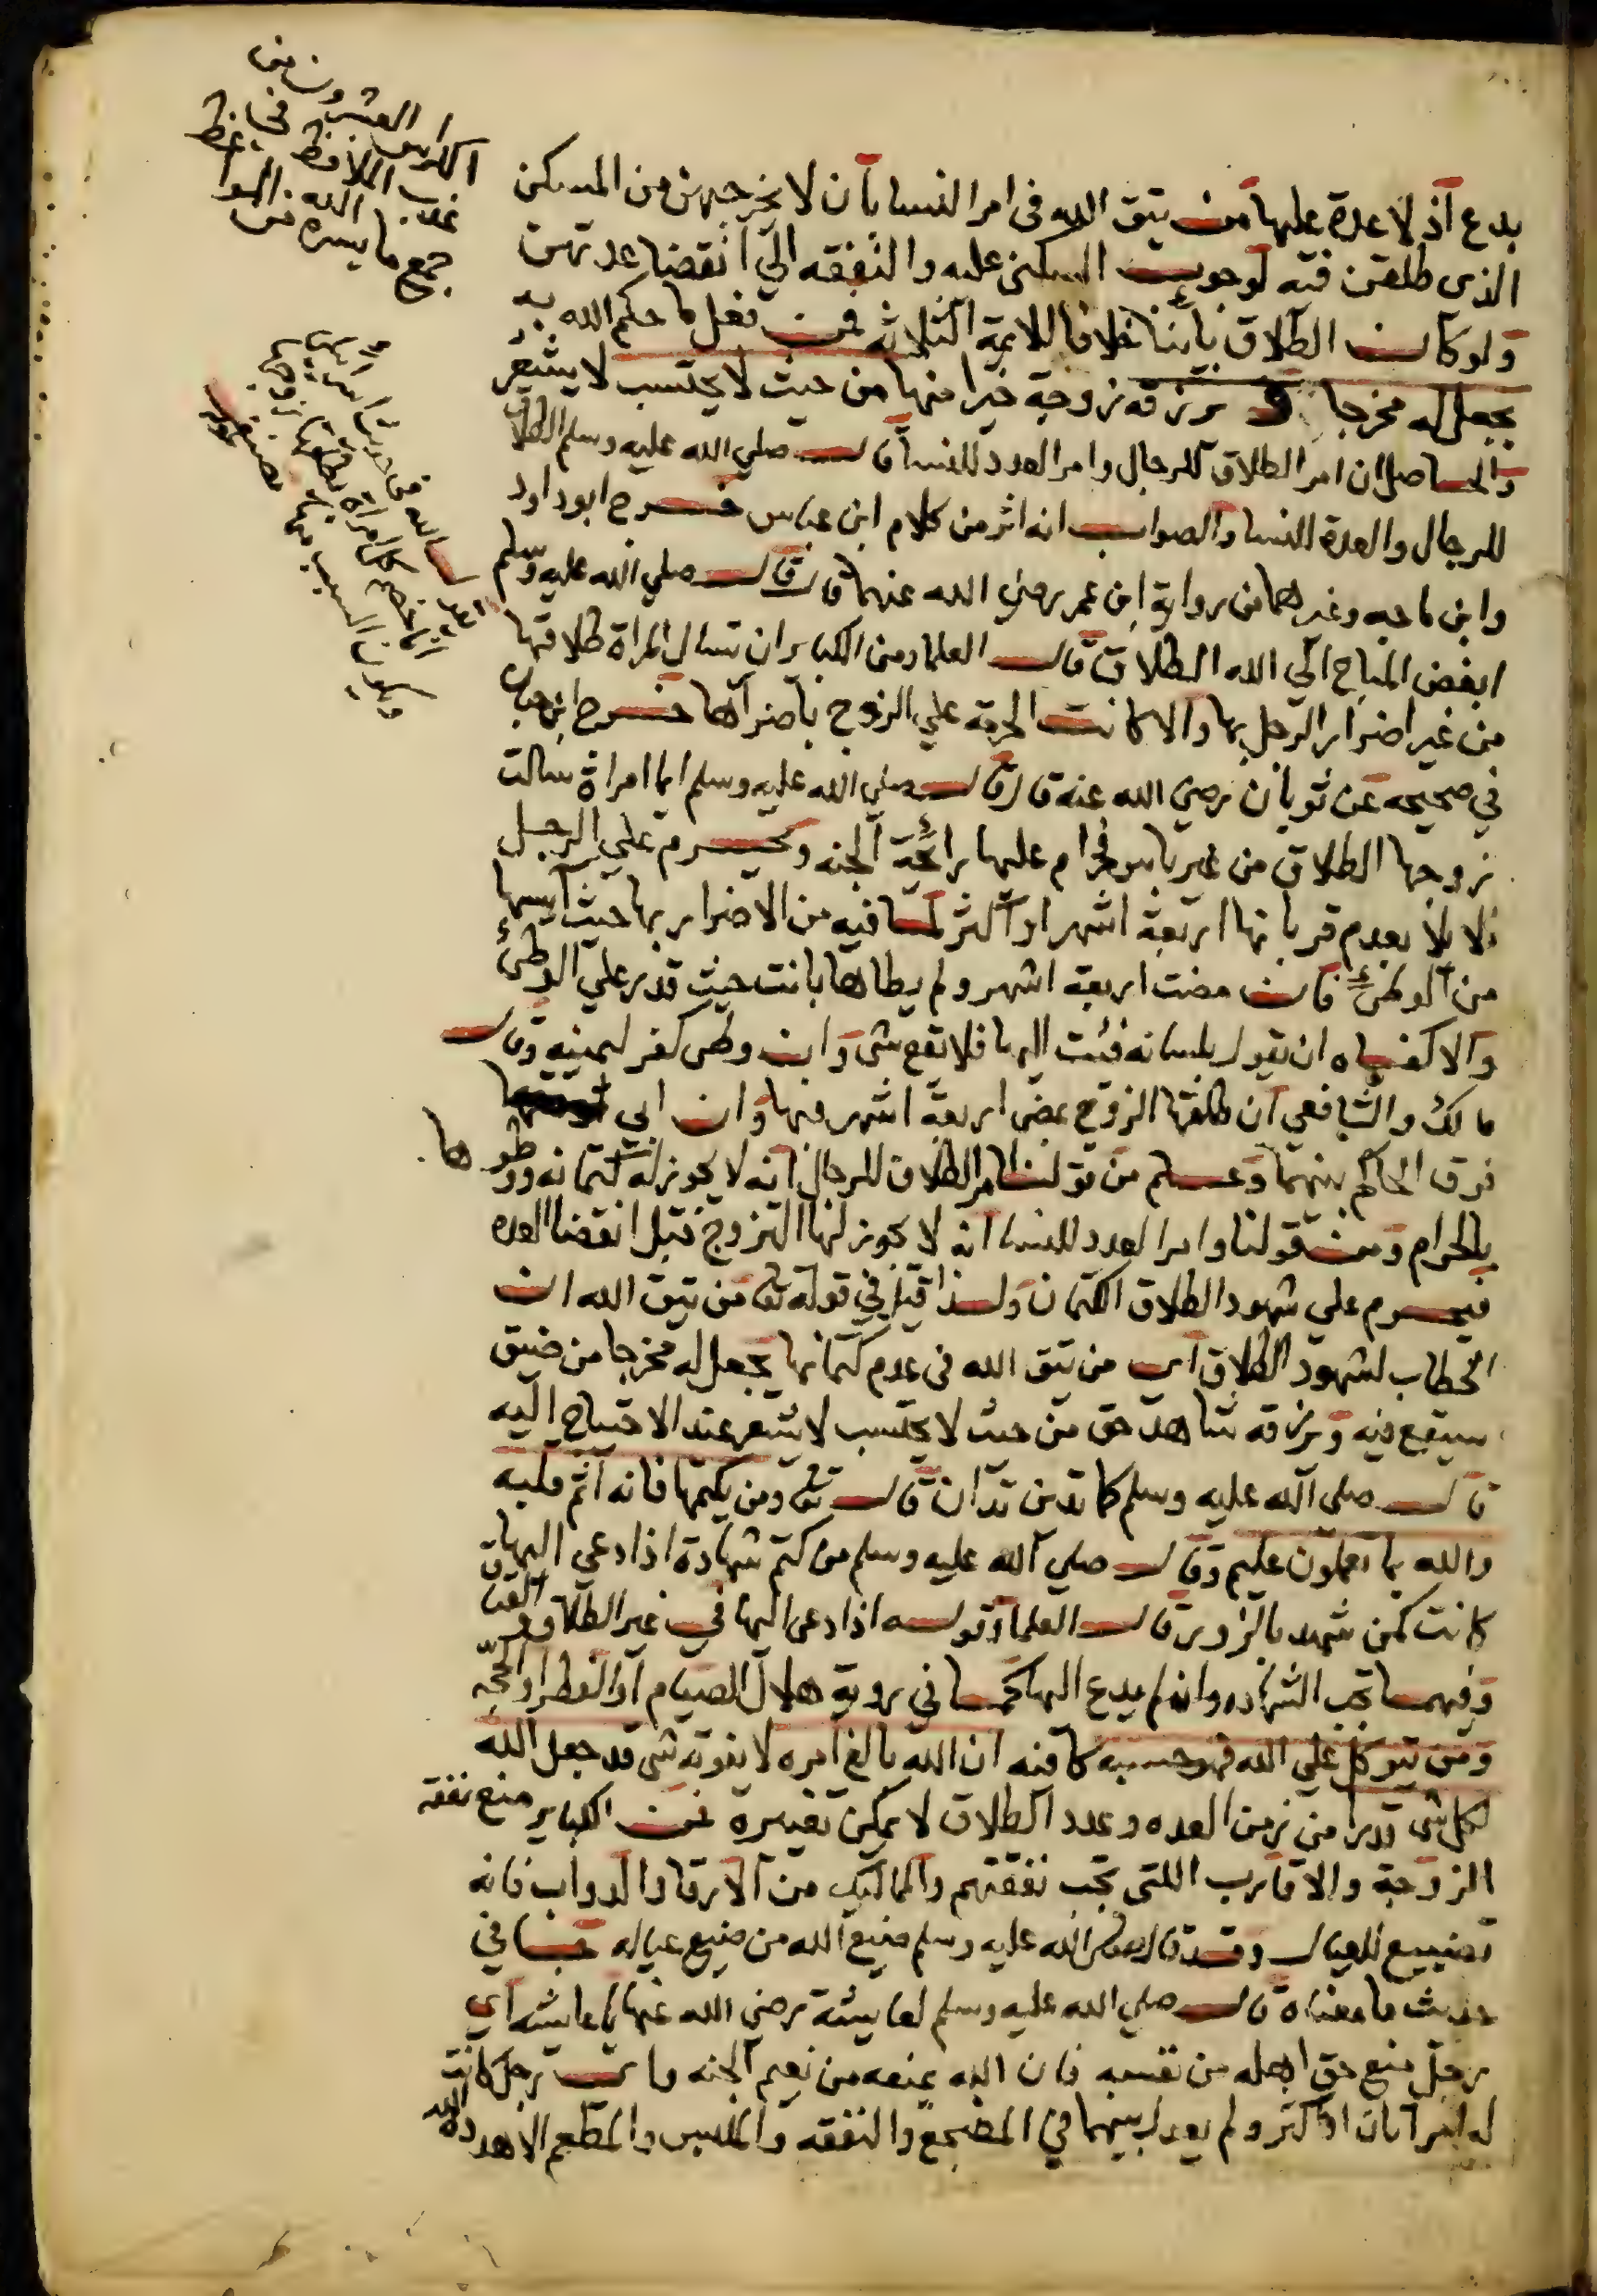 العشرون من
الكراس
جمع ما يسره من
بدع اذ لا عدة عليها من يتق الله في امر النسا بان لا يخرجهن من المسكن
الذي طلقن فيه لوجوب السكنى عليه والنفقه الي انقضا عدتهن
ولو كان الطلاق باينا خلافا للايمة الثلاثه فمن فعل ما حكم الله به
يجعل له مخرجا و يرزقه زوجة خيرا منها من حيث لا يحتسب لا يشعر
والحاصل ان امر الطلاق للرجال وامر العدد للنسا قال صلي الله عليه وسلم الطلاق
للرجال والعدة للنسا والصواب انه اثر من كلام ابن عباس خرج ابو داود
وابن ماجه وغيرهما من رواية ابن عمر رضي الله عنهما قال قال صلي الله عليه وسلم
ابغض المباح الي الله الطلاق قال العلما ومن الكباير ان تسال المراة طلاقها
من غير اضرار الرجل بها والا كانت الحرمة علي الزوج باضرارها خرج ابن حبان
في صحيحه عن ثوبان رضي الله عنه قال قال صلي الله عليه وسلم ايما امراة سالت
زوجها الطلاق من غير باس فحرام عليها رائحة الجنه ويحرم علي الرجل
الايلا بعدم قربانها اربعة اشهر او اكثر لما فيه من الاضرار بها حيث آيسها
من الوطئ فان مضت اربعة اشهر ولم يطاها بانت حيث قدر علي الوطئ
والا كفاه ان يقول بلسانه فئت اليها فلا تقع شي وان وطي كفر ليمينه وقال
مالك والشافعي ان طلقها الزوج بمضي اربعة اشهر فبها وان ابي
فرق الحاكم بينهما وعلم من قولنا امر الطلاق للرجال انه لا يجوز له كتمانه ووطوها
بالحرام ومن قولنا وامر العدد للنسا انه لا يجوز لها التزوج قبل انقضا العده
فيحرم علي شهود الطلاق الكتمان ولذا قيل في قوله تعالى من يتق الله ان
الخطاب لشهود الطلاق اي من يتق الله في عدم كتمانها يجعل له مخرجا من ضيق
سيقع فيه ويرزقه شاهد حق من حيث لا يحتسب لا يشعر عند الاحتياج اليه
قال صلي الله عليه وسلم كما تدين تدان قال تعالى ومن يكتمها فانه آثم قلبه
والله بما تعملون عليم وقال صلي الله عليه وسلم من كتم شهادة اذا دعي اليها
كانت كمن شهد بالزور قال العلما وقوله اذا دعي اليها في غير الطلاق والعتاق
وفيهما تجب الشهاده وان لم يدع اليها كما في روية هلال الصيام او الفطر او الحجه
ومن يتوكل علي الله فهو حسبه كافيه ان الله بالغ امره لا يفوته شي قد جعل الله
لكل شي قدرا من زمن العده وعدد الطلاق لا يمكن تغييره فمن الكباير منع نفقة
الزوجة والاقارب اللتي تجب نفقتهم والمماليك من الارقا والدواب فانه
تضييع للعيال وقد قال صلي الله عليه وسلم ضيع الله من ضيع عياله في
حديث ما معناه قال صلي الله عليه وسلم لعايشة رضي الله عنها يا عايشه اي
رجل منع حق اهله من نفسه فان الله يمنعه من نعيم الجنه واي رجل كانت
له امراتان او اكثر ولم يعدل بينهما في المضجع والنفقه والملبس والمطعم الا